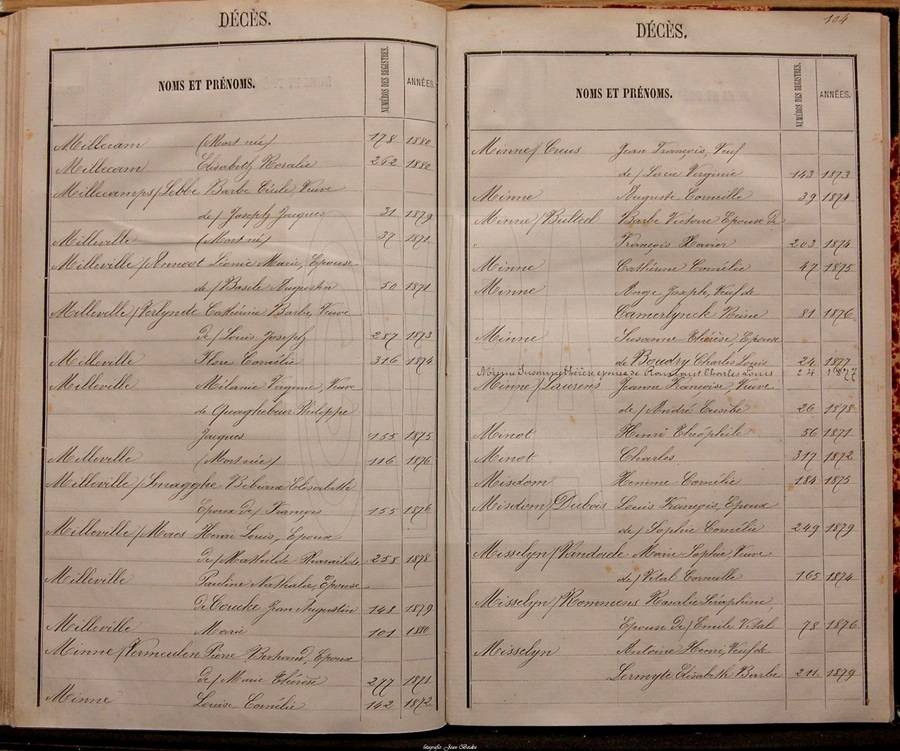 DÉCÈS.
NOMS ET PRÉNOMS. NUMÉROS DES REGISTRES. ANNÉES.
Millecam (Mort né) 178 1880
Millecam Elisabeth Rosalie 262 1880
Millecamps/Lebbe Barbe Cécile Veuve
de/ Joseph Jacques 31 1879
Milleville (Mort né) 37 1871
Milleville/Annoot Léonie Marie, Epouse
de/ Basile Augustin 50 1871
Milleville/Verlynde Cathérine Barbe, Veuve
de/ Louis Joseph 287 1873
Milleville Flore Cornélie 316 1874
Milleville Mélanie Virginie, Veuve
de Queaghebeur Philippe
Jacques 155 1875
Milleville (Mort née) 116 1876
Milleville/Smagghe Bibiane Elisabeth
Epoux de/ François 155 1876
Milleville/Maes Henri Louis, Epoux
de/ Mathilde Pharaïlde 258 1878
Milleville Pauline Nathalie, Epouse
De Cruike Jean Augustin 148 1879
Milleville Marie 101 1880
Minne/Vermeulen Pierre Bertrand, Epoux
de/ Marie Thérèse 277 1871
Minne Louise Cornélie 142 1872
104
DÉCÈS.
NOMS ET PRÉNOMS. NUMÉROS DES REGISTRES. ANNÉES.
Minne/Creus Jean François, Veuf
de/ Lucie Virginie 143 1873
Minne Auguste Corneille 39 1874
Minne/Bulteel Barbe Victoire Epouse de
François Xavier 203 1874
Minne Cathérine Cornélie 47 1875
Minne Ange Joseph, Veuf de
Camerlynck Reine 81 1876
Minne Susanne Thérèse, Epouse
de Boudry Charles Louis 24 1877
Minne Susanne Thérèse, épouse de Charles Louis 24 1877
Minne/Laurens Jeanne Françoise, Veuve
de/ André Eusèbe 26 1878
Minot Henri Théophile 56 1871
Minot Charles 317 1872
Misdom Hemme Cornélie 184 1875
Misdom/Dubois Louis François, Epoux
de/ Sophie Cornélie 249 1879
Misselyn/Vandaele Marie Sophie, Veuve
de/ Vital Corneille 165 1874
Misselyn/Rommens Rosalie Séraphine,
Epouse de/ Emile Vital 78 1876
Misselyn Antoine Henri, Veuf de
Dermyte Elisabeth Barbe 211 1879
fotografie Jean Bockx